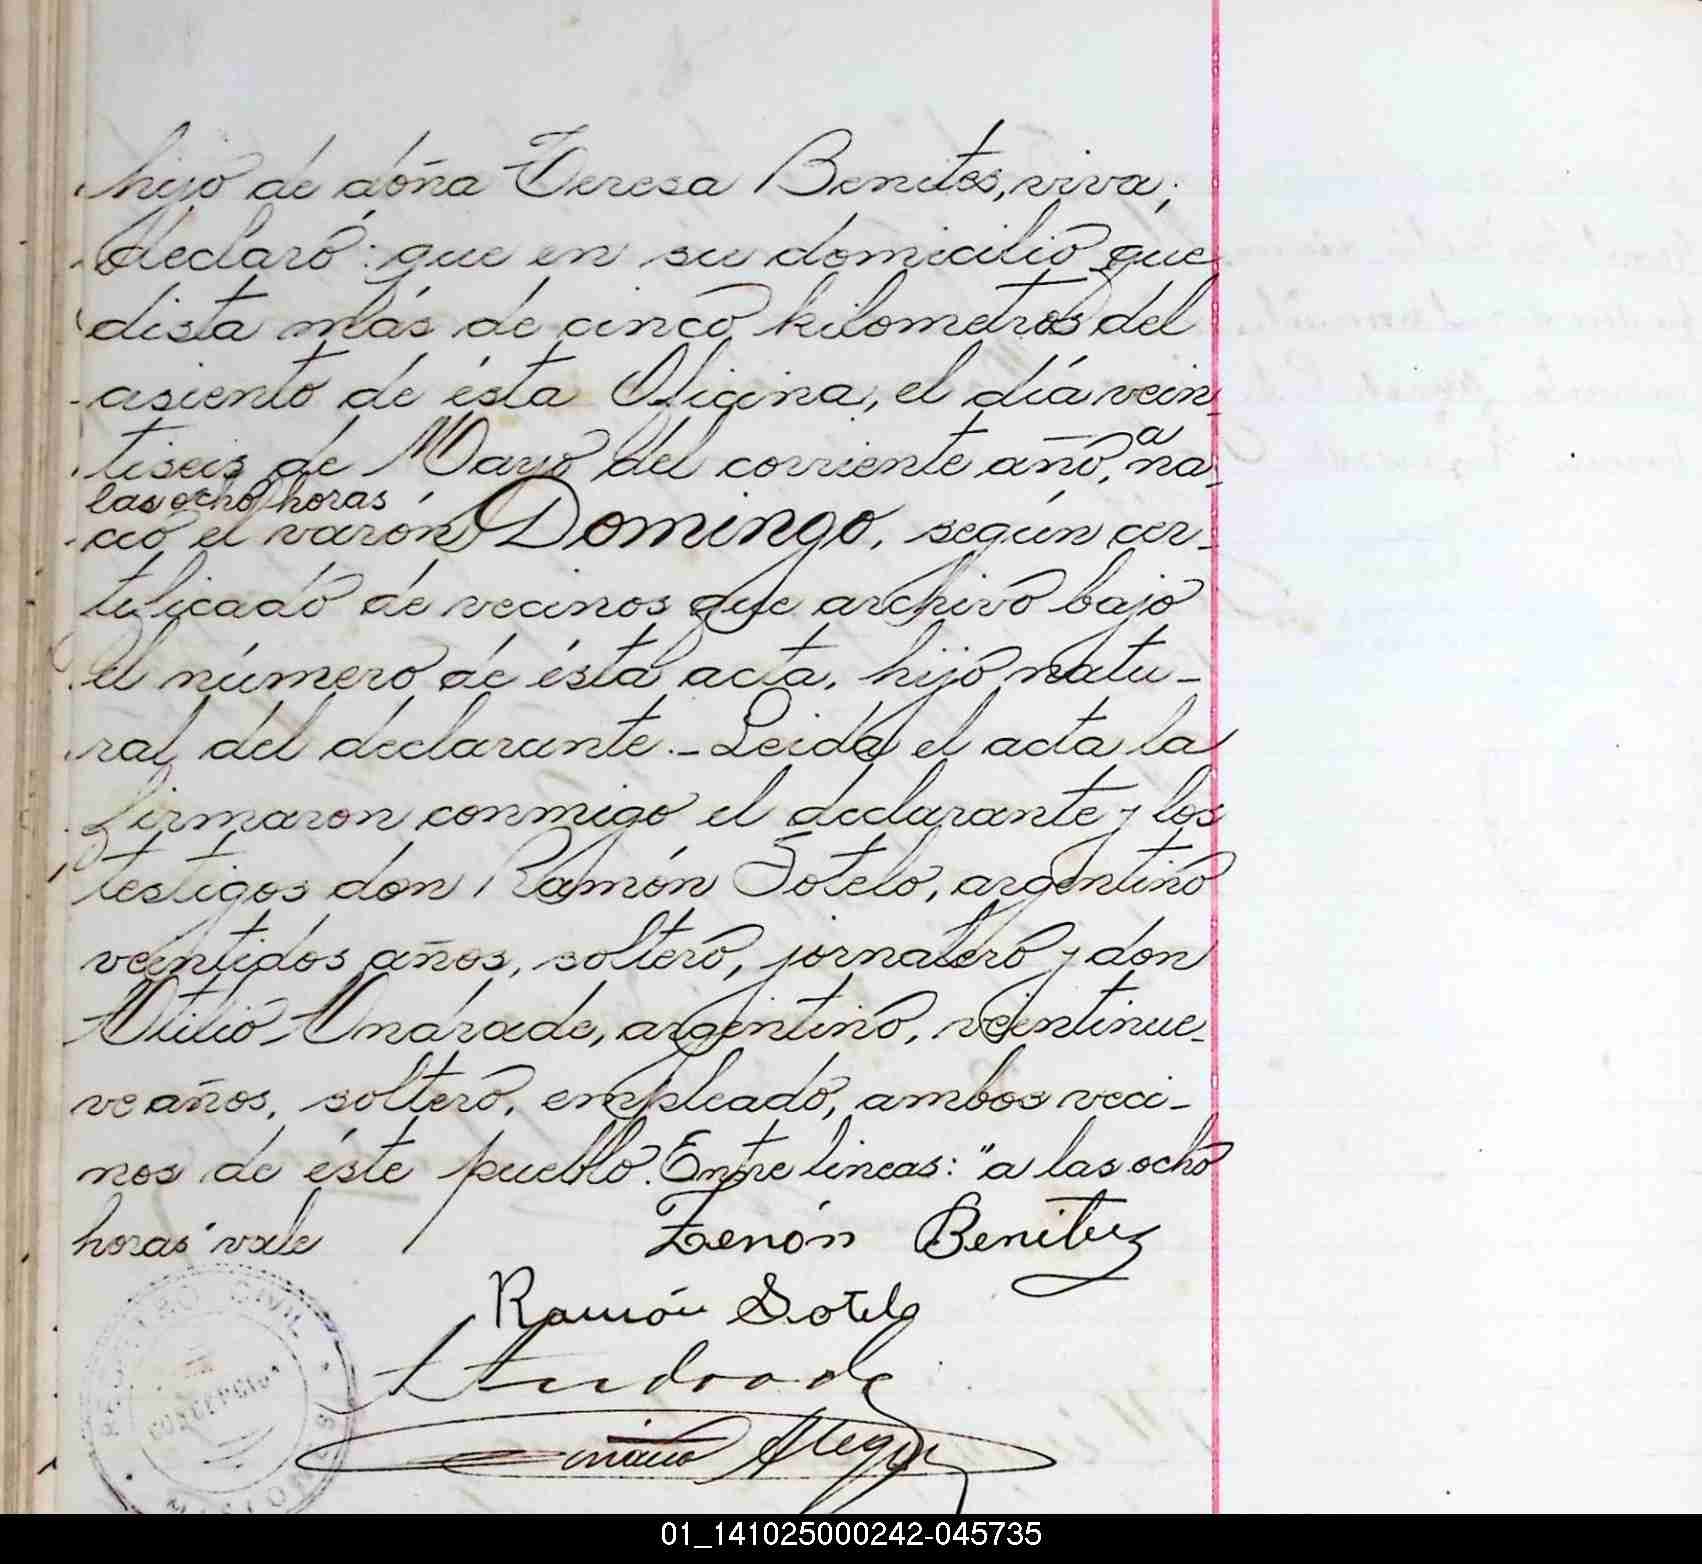 hijo de doña Teresa Benites, viva;
declaró: que en su domicilio que
dista más de cinco kilometros del
asiento de ésta Oficina, el día vein-
tiseis de Mayo del corriente año, a na-
las ocho horas
ció el varón Domingo, según cer-
tificado de vecinos que archivo bajo
el número de ésta acta, hijo natu-
ral del declarante.- Leida el acta la
firmaron conmigo el declarante y los
testigos don Ramón Sotelo, argentino
veintidos años, soltero, jornalero y don
Otilio Andrade, argentino, veintinue-
ve años, soltero, empleado, ambos veci-
nos de éste pueblo. Entre lineas: "a las ocho
horas" vale
Zenón Benitez
Ramón Sotelo
Andrade
REGISTRO CIVIL
01_141025000242-045735